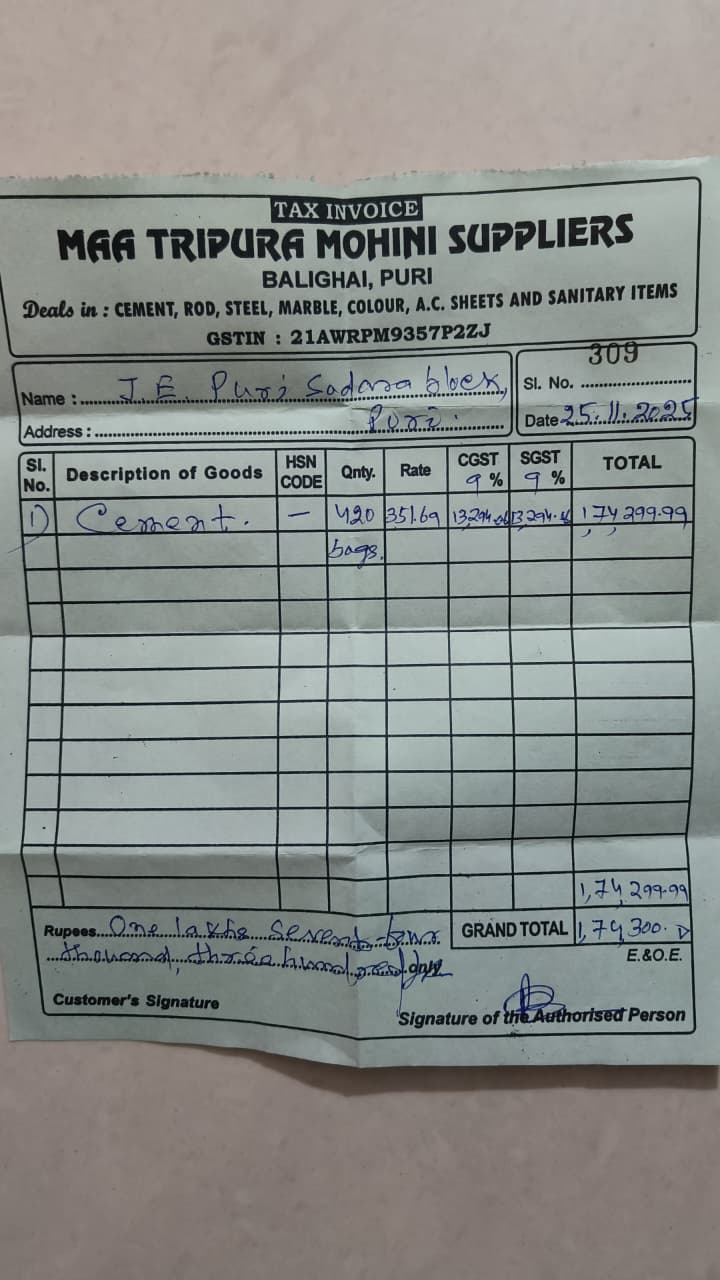 TAX INVOICE
MAA TRIPURA MOHINI SUPPLIERS
BALIGHAI, PURI
Deals in : CEMENT, ROD, STEEL, MARBLE, COLOUR, A.C. SHEETS AND SANITARY ITEMS
GSTIN : 21AWRPM9357P2ZJ
Name : J E Puri Sadara block,
Address : Puri.
Sl. No. 309
Date 25.11.2025
Sl. No. Description of Goods HSN CODE Qnty. Rate CGST 9 % SGST 9 % TOTAL
1) Cement. — 420 351.69 13,294. 13,294. 1,74,299.99
bags.
1,74,299.99
Rupees One lakhs Seventy four GRAND TOTAL 1,74,300.
thousand, three hundred only
E.&O.E.
Customer's Signature
Signature of the Authorised Person